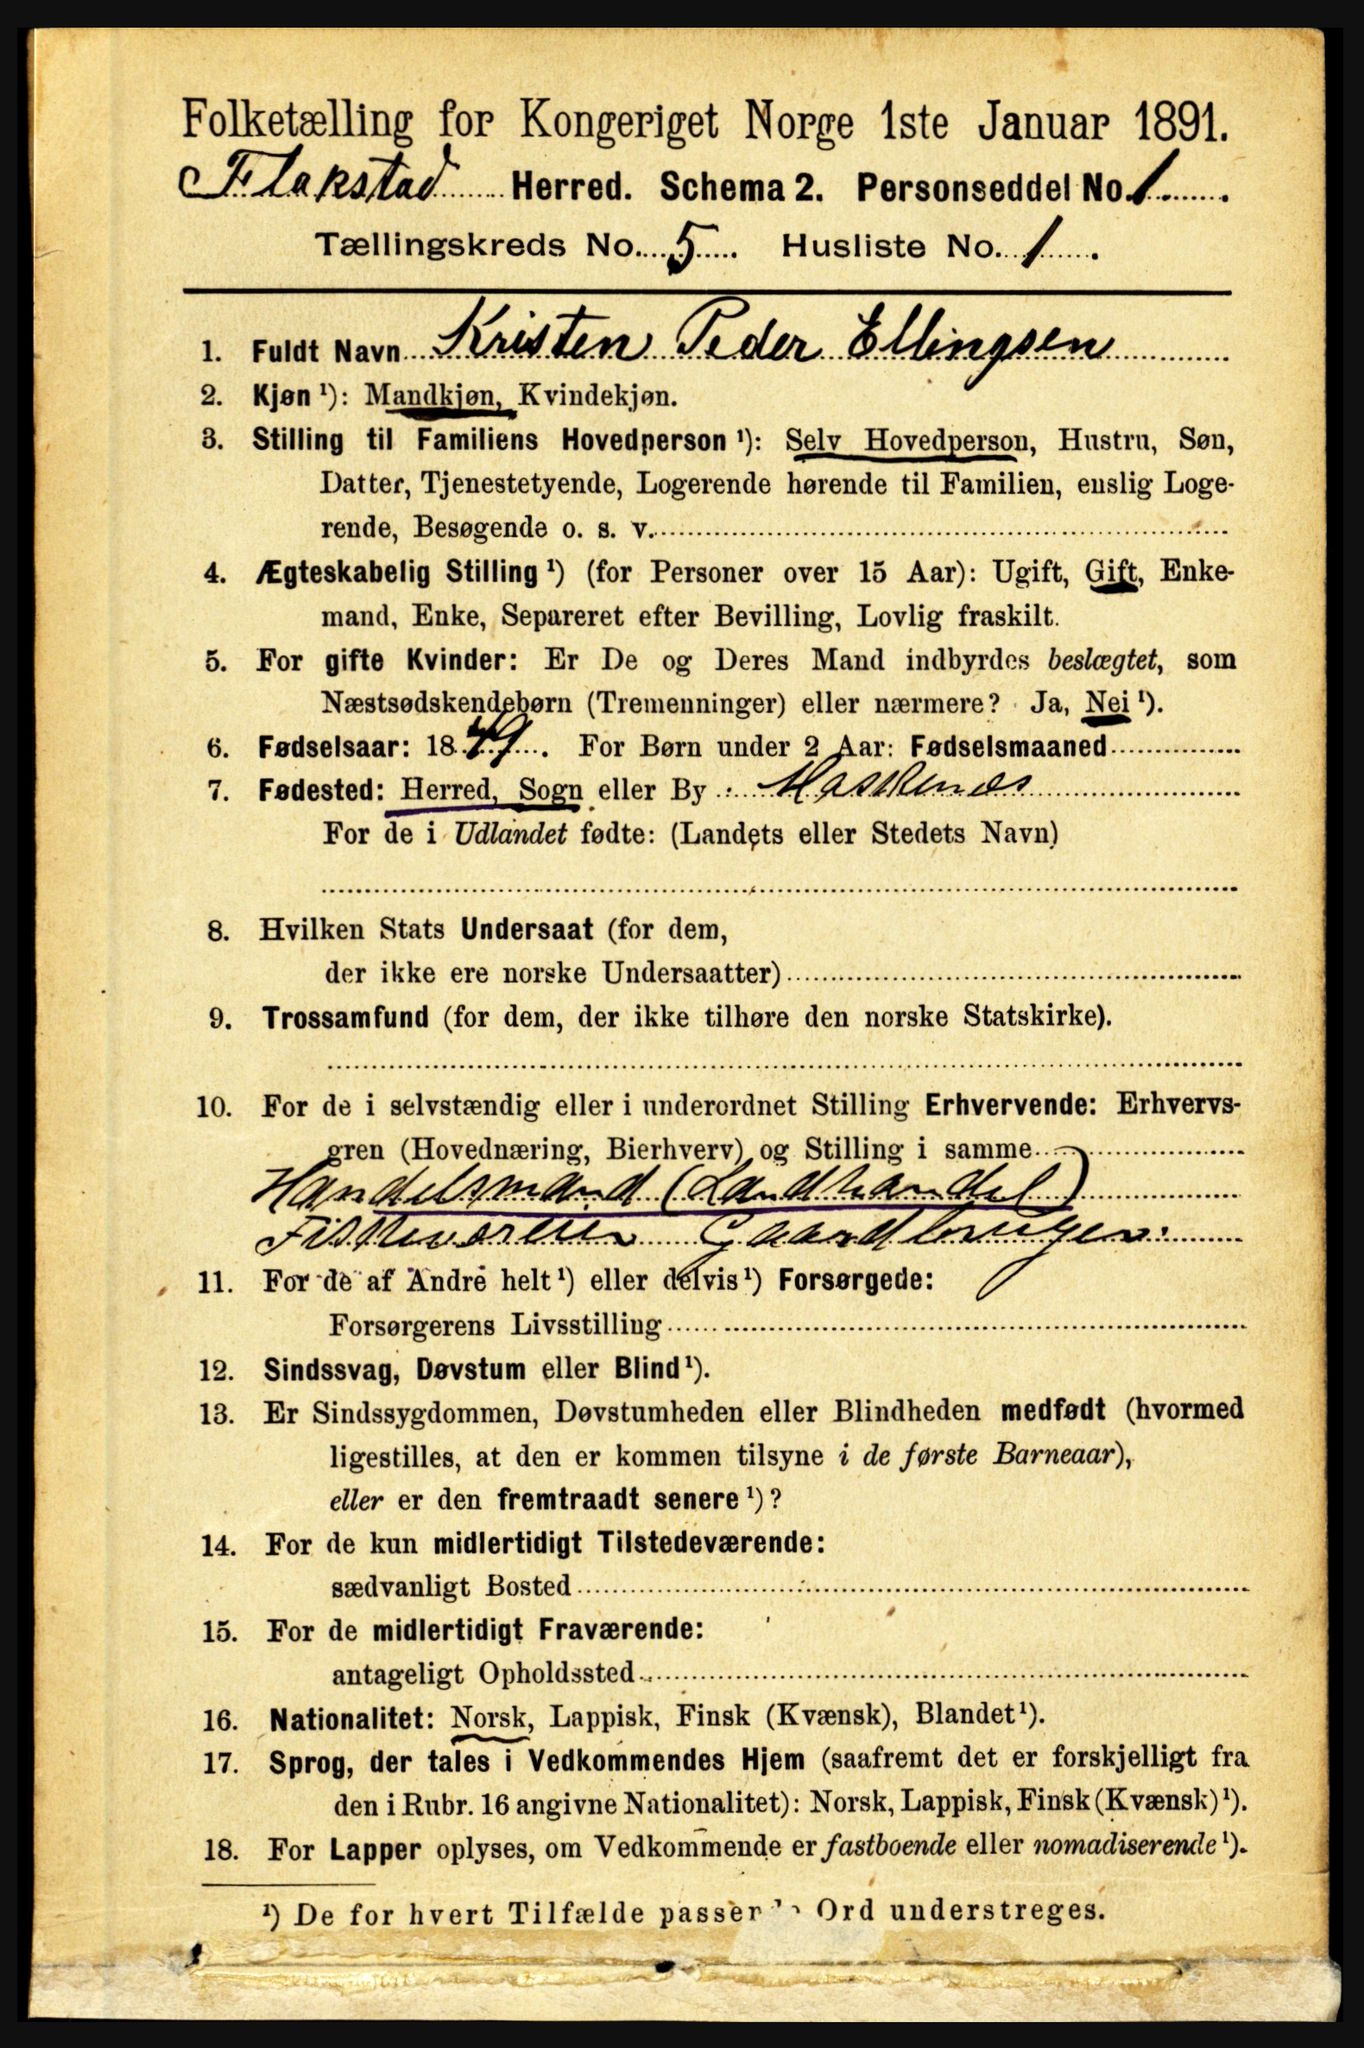 Folketælling for Kongeriget Norge 1ste Januar 1891.
Flakstad Herred. Schema 2. Personseddel No. 1.
Tællingskreds No. 5. Husliste No. 1.
1. Fuldt Navn Kristen Peder Ellingsen
2. Kjøn ¹): Mandkjøn, Kvindekjøn.
3. Stilling til Familiens Hovedperson ¹): Selv Hovedperson, Hustru, Søn,
Datter, Tjenestetyende, Logerende hørende til Familien, enslig Loge-
rende, Besøgende o. s. v.
4. Ægteskabelig Stilling ¹) (for Personer over 15 Aar): Ugift, Gift, Enke-
mand, Enke, Separeret efter Bevilling, Lovlig fraskilt.
5. For gifte Kvinder: Er De og Deres Mand indbyrdes beslægtet, som
Næstsødskendebørn (Tremenninger) eller nærmere? Ja, Nei ¹).
6. Fødselsaar: 1849. For Børn under 2 Aar: Fødselsmaaned
7. Fødested: Herred, Sogn eller By Moskenæs
For de i Udlandet fødte: (Landets eller Stedets Navn)
8. Hvilken Stats Undersaat (for dem,
der ikke ere norske Undersaatter)
9. Trossamfund (for dem, der ikke tilhøre den norske Statskirke).
10. For de i selvstændig eller i underordnet Stilling Erhvervende: Erhvervs-
gren (Hovednæring, Bierhverv) og Stilling i samme
Handelsmand (Landhandel)
Fiskeværeier Gaardbruger.
11. For de af Andre helt ¹) eller delvis ¹) Forsørgede:
Forsørgerens Livsstilling
12. Sindssvag, Døvstum eller Blind ¹).
13. Er Sindssygdommen, Døvstumheden eller Blindheden medfødt (hvormed
ligestilles, at den er kommen tilsyne i de første Barneaar),
eller er den fremtraadt senere ¹)?
14. For de kun midlertidigt Tilstedeværende:
sædvanligt Bosted
15. For de midlertidigt Fraværende:
antageligt Opholdssted
16. Nationalitet: Norsk, Lappisk, Finsk (Kvænsk), Blandet ¹).
17. Sprog, der tales i Vedkommendes Hjem (saafremt det er forskjelligt fra
den i Rubr. 16 angivne Nationalitet): Norsk, Lappisk, Finsk (Kvænsk) ¹).
18. For Lapper oplyses, om Vedkommende er fastboende eller nomadiserende ¹).
¹) De for hvert Tilfælde passende Ord understreges.